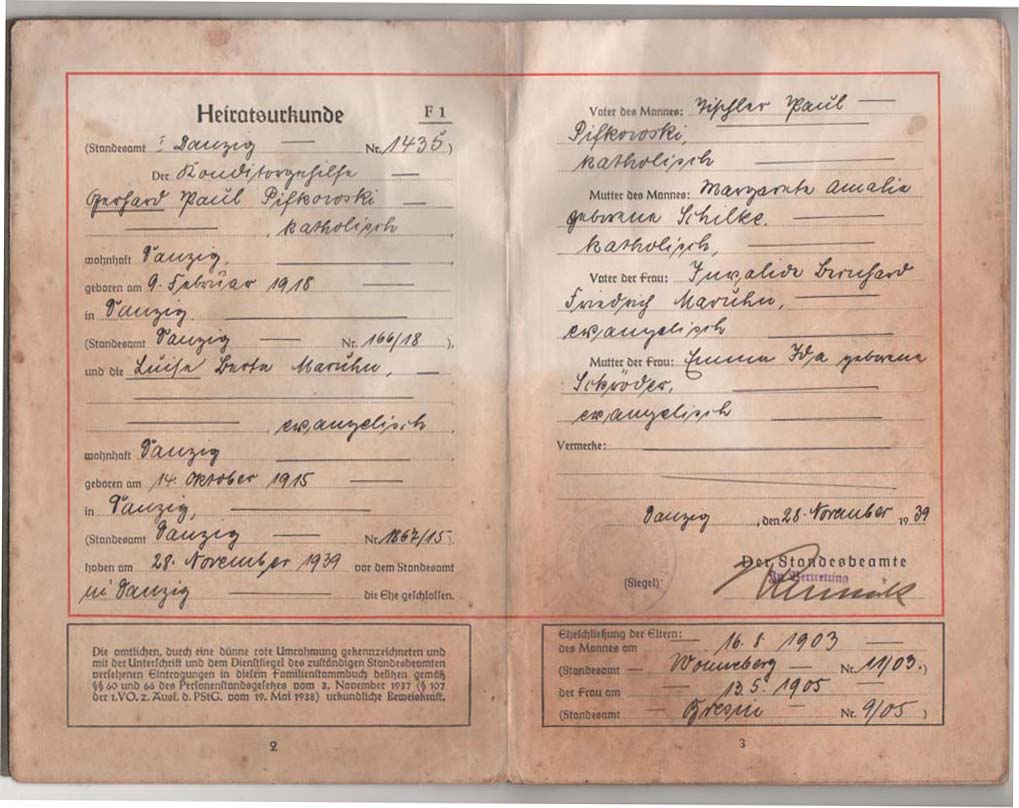 Heiratsurkunde F 1
(Standesamt I Danzig Nr. 1435)
Der Konditorgehilfe
Gerhard Paul Pifkowski
, katholisch
wohnhaft Danzig,
geboren am 9. Februar 1918
in Danzig
(Standesamt Danzig Nr. 166/18),
und die Luise Berta Maruhn,
evangelisch,
wohnhaft Danzig
geboren am 14. Oktober 1915
in Danzig,
(Standesamt Danzig Nr. 1867/15).
haben am 28. November 1939 vor dem Standesamt
in Danzig die Ehe geschlossen.
Die amtlichen, durch eine dünne rote Umrahmung gekennzeichneten und
mit der Unterschrift und dem Dienstsiegel des zuständigen Standesbeamten
versehenen Eintragungen in diesem Familienstammbuch besitzen gemäß
§§ 60 und 66 des Personenstandsgesetzes vom 3. November 1937 (§ 107
der 1. VO. z. Ausf. d. PStG. vom 19. Mai 1938) urkundliche Beweiskraft.
2
Vater des Mannes: Tischler Paul
Pifkowski,
katholisch
Mutter des Mannes: Margarete Amalie
geborene Schilke,
katholisch,
Vater der Frau: Invalide Bernhard
Friedrich Maruhn,
evangelisch
Mutter der Frau: Emma Ida geborene
Schröder,
evangelisch
Vermerke:
Danzig, den 28. November 1939
Der Standesbeamte
In Vertretung
(Siegel)
Eheschließung der Eltern:
des Mannes am 16. 8. 1903
(Standesamt Wonneberg Nr. 11/03.)
der Frau am 13. 5. 1905
(Standesamt Nr. 9/05)
3